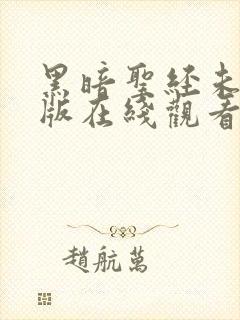 黑暗聖經未
版在綫觀看
趙航萬